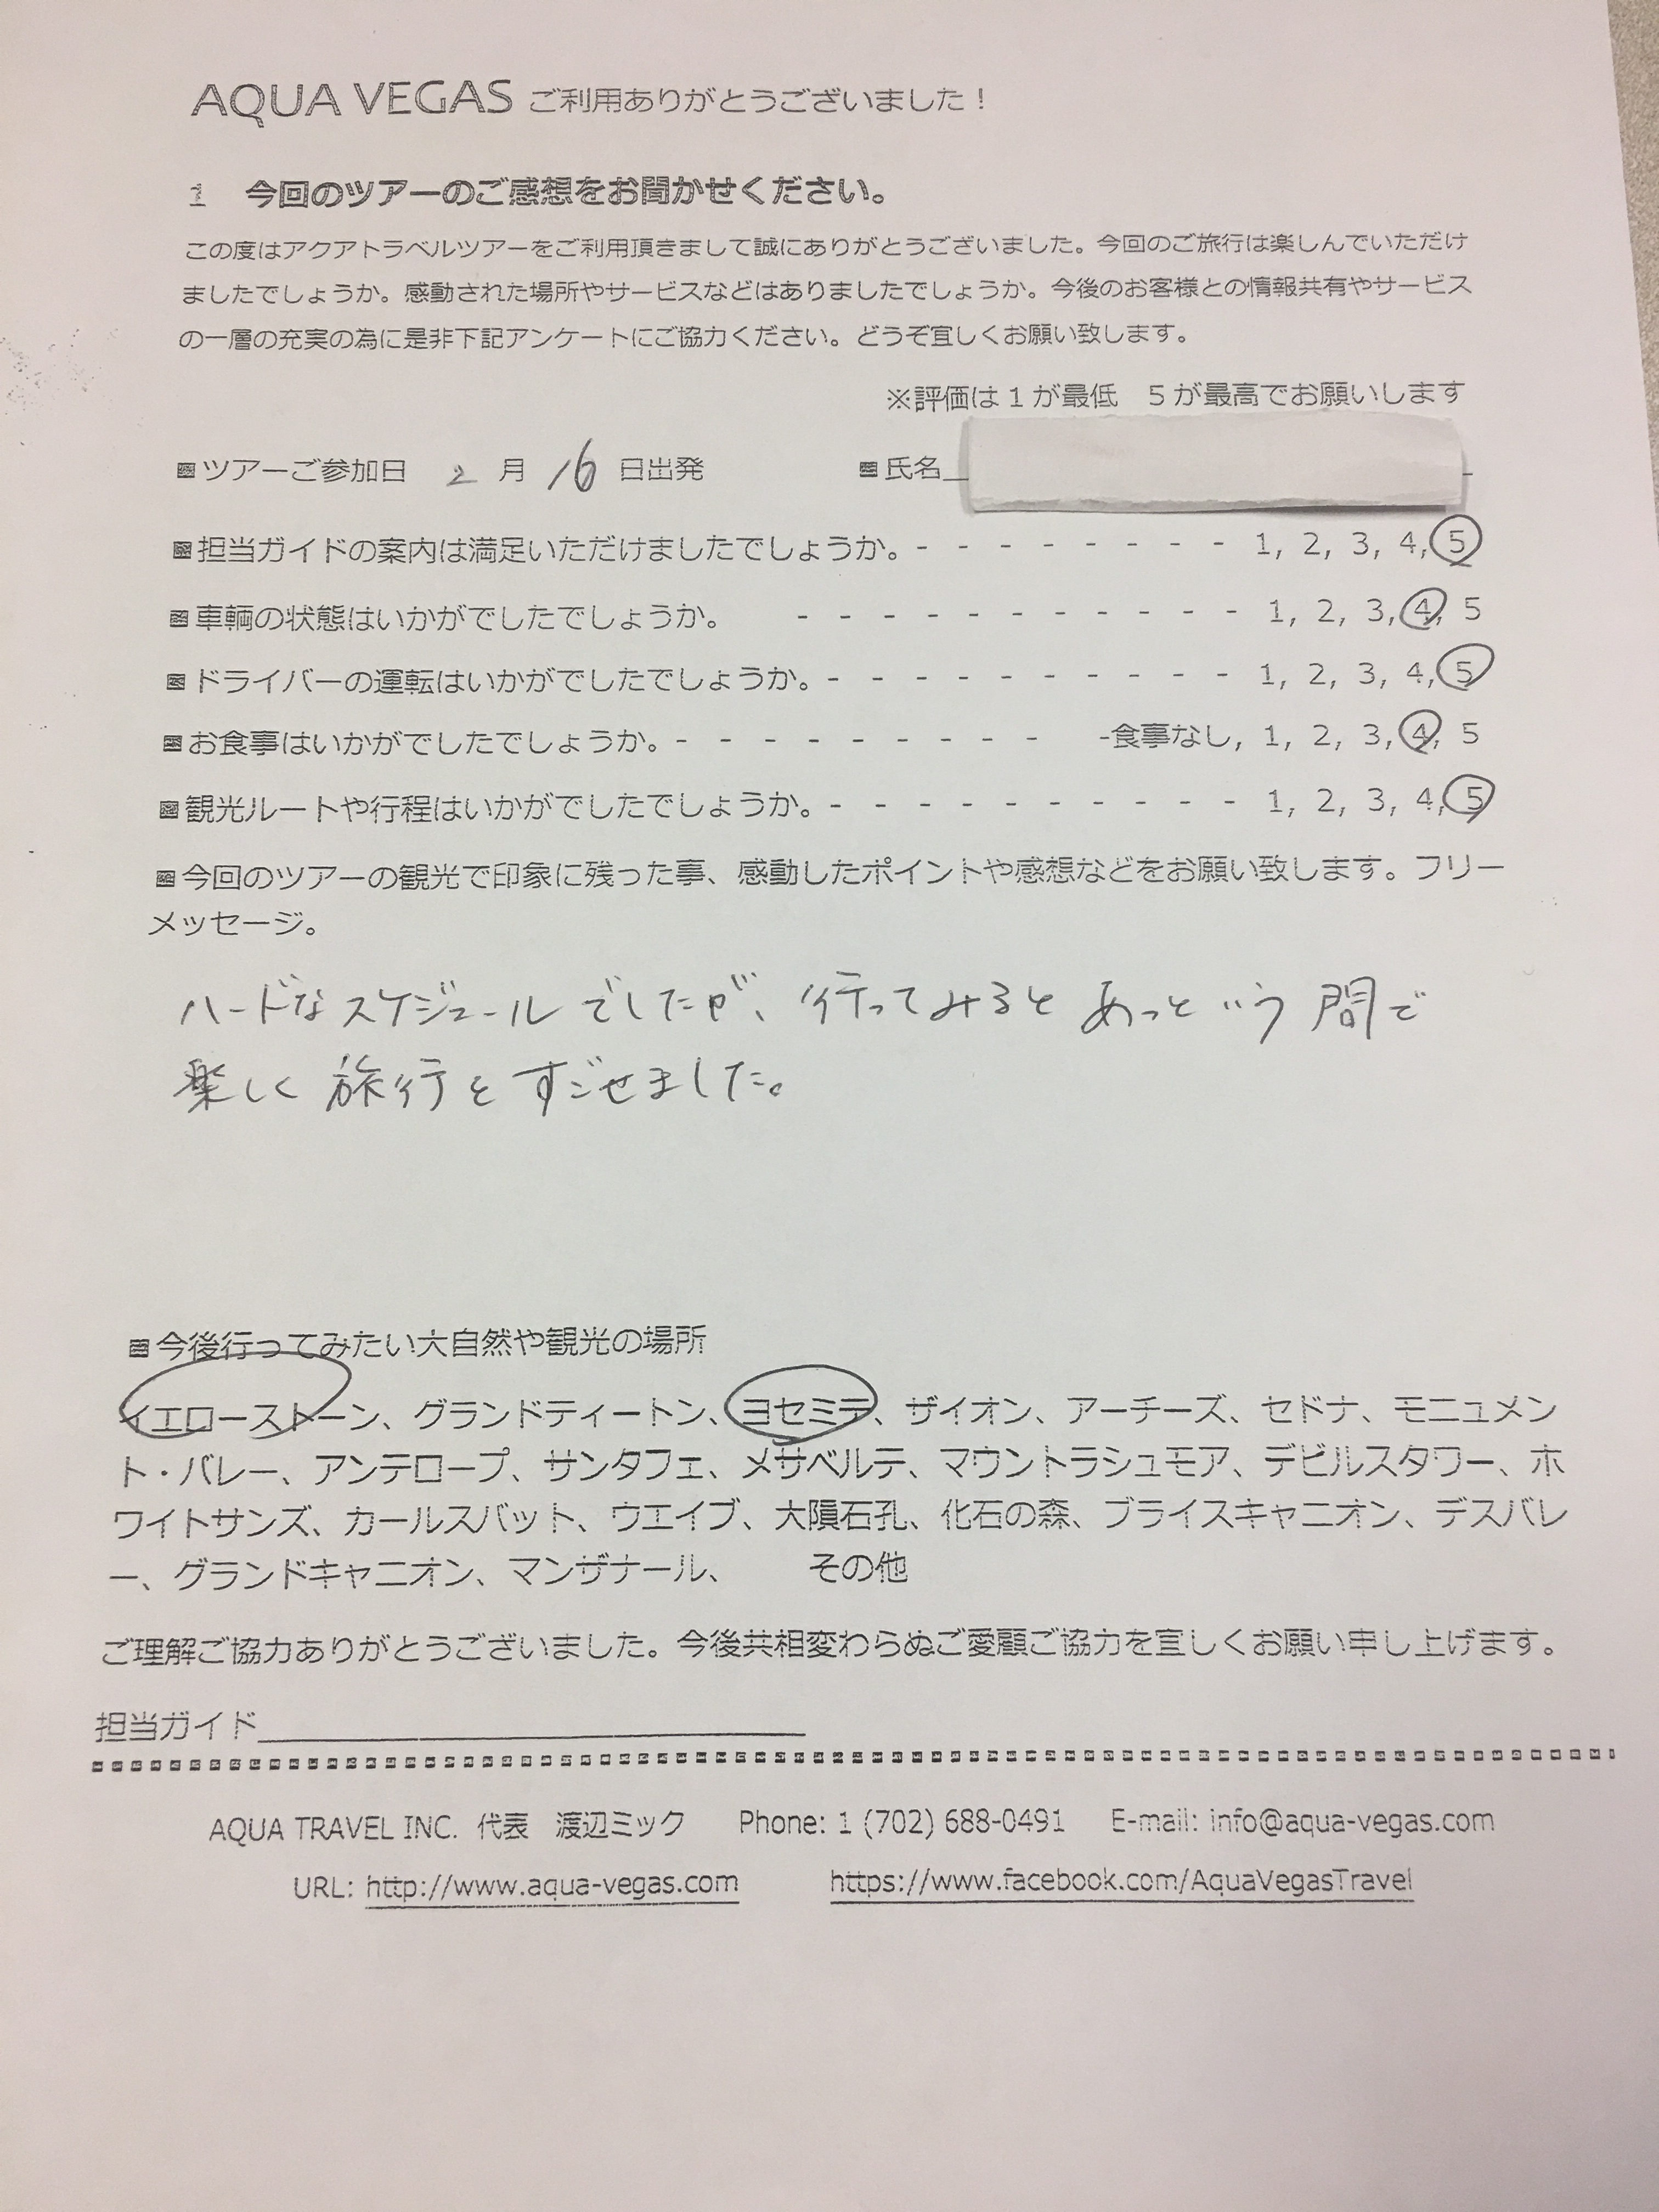 AQUA VEGAS ご利用ありがとうございました！
1 今回のツアーのご感想をお聞かせください。
この度はアクアトラベルツアーをご利用頂きまして誠にありがとうございました。今回のご旅行は楽しんでいただけ
ましたでしょうか。感動された場所やサービスなどはありましたでしょうか。今後のお客様との情報共有やサービス
の一層の充実の為に是非下記アンケートにご協力ください。どうぞ宜しくお願い致します。
※評価は1が最低 5が最高でお願いします
■ツアーご参加日 2 月 16 日出発 ■氏名
■担当ガイドの案内は満足いただけましたでしょうか。- - - - - - - - 1, 2, 3, 4, 5
■車輌の状態はいかがでしたでしょうか。 - - - - - - - - - - - 1, 2, 3, 4, 5
■ドライバーの運転はいかがでしたでしょうか。- - - - - - - - - - 1, 2, 3, 4, 5
■お食事はいかがでしたでしょうか。- - - - - - - - - -食事なし, 1, 2, 3, 4, 5
■観光ルートや行程はいかがでしたでしょうか。- - - - - - - - - - 1, 2, 3, 4, 5
■今回のツアーの観光で印象に残った事、感動したポイントや感想などをお願い致します。フリー
メッセージ。
ハードなスケジュールでしたが、行ってみるとあっという間で
楽しく旅行をすごせました。
■今後行ってみたい大自然や観光の場所
イエローストーン、グランドティートン、ヨセミテ、ザイオン、アーチーズ、セドナ、モニュメン
ト・バレー、アンテロープ、サンタフェ、メサベルテ、マウントラシュモア、デビルスタワー、ホ
ワイトサンズ、カールスバット、ウエイブ、大隕石孔、化石の森、ブライスキャニオン、デスバレ
ー、グランドキャニオン、マンザナール、 その他
ご理解ご協力ありがとうございました。今後共相変わらぬご愛顧ご協力を宜しくお願い申し上げます。
担当ガイド
AQUA TRAVEL INC. 代表 渡辺ミック Phone: 1 (702) 688-0491 E-mail: info@aqua-vegas.com
URL: http://www.aqua-vegas.com https://www.facebook.com/AquaVegasTravel